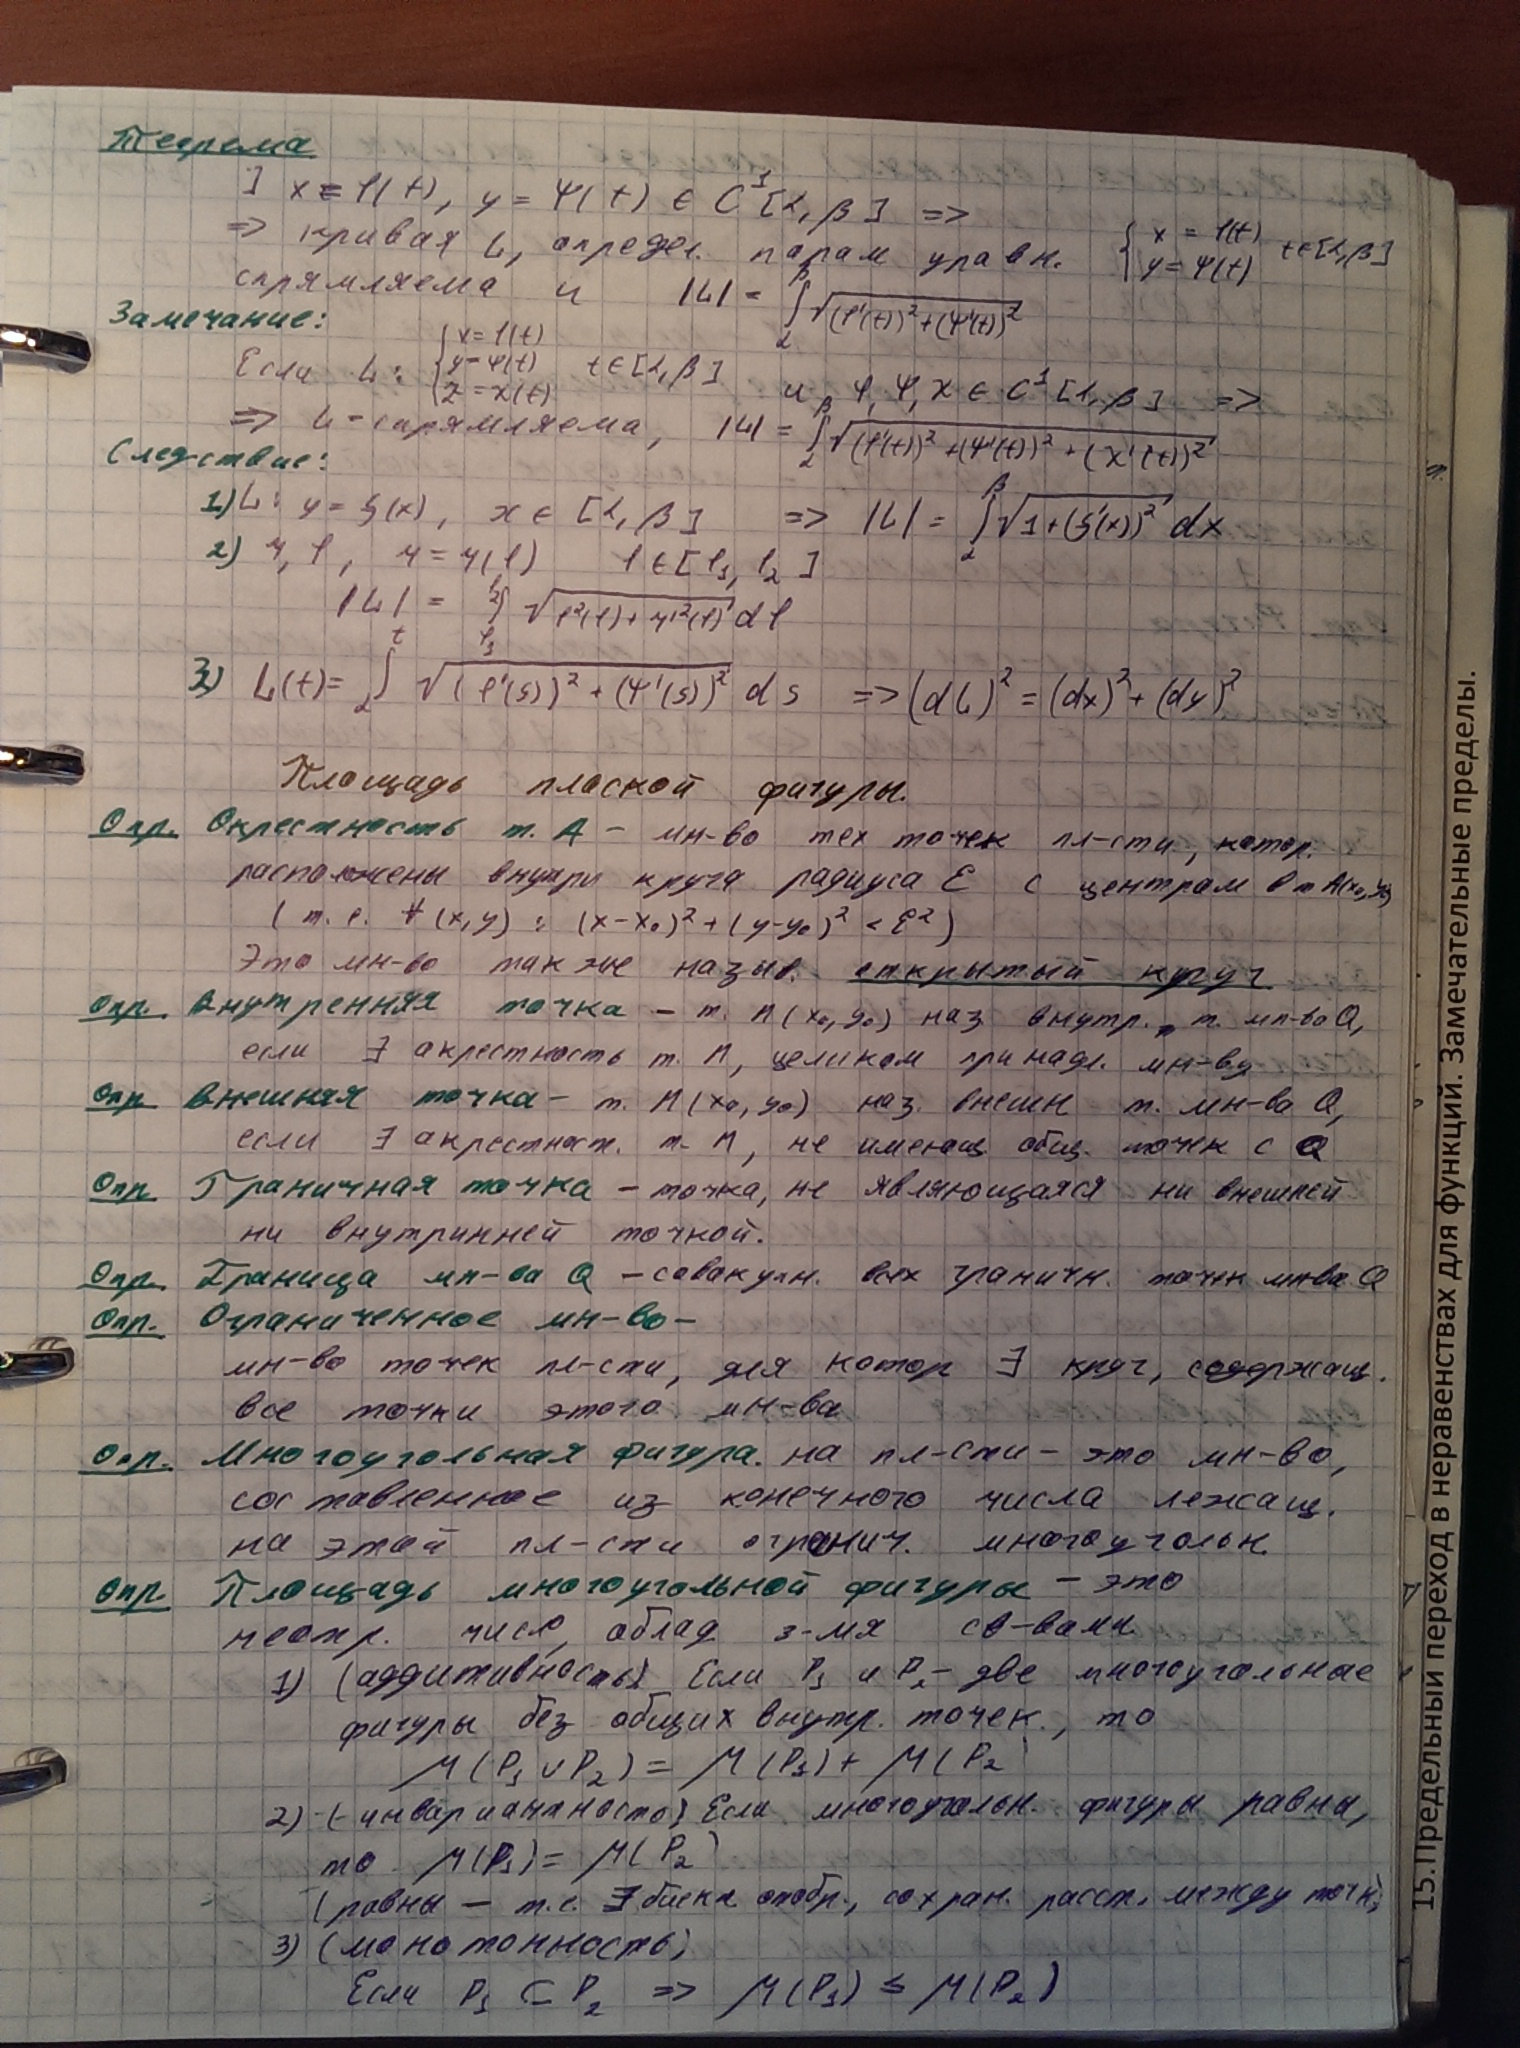 Теорема
] x = φ(t), y = ψ(t) ∈ C¹[α, β] =>
=> кривая L, определ. парам уравн. { x = φ(t) y = ψ(t) t∈[α, β]
спрямляема и |L| = ∫_α^β √((φ'(t))² + (ψ'(t))²)
Замечание:
Если L: { x = φ(t) y = ψ(t) z = χ(t) t∈[α, β] и φ, ψ, χ ∈ C¹[α, β] =>
=> L - спрямляема, |L| = ∫_α^β √((φ'(t))² + (ψ'(t))² + (χ'(t))²)
Следствие:
1) L: y = f(x), x ∈ [α, β] => |L| = ∫_α^β √(1 + (f'(x))²) dx
2) r, φ, r = r(φ) φ ∈ [φ₁, φ₂]
|L| = ∫_φ₁^φ₂ √(φ²(φ) + r'²(φ)) dφ
3) L(t) = ∫_α^t √((φ'(s))² + (ψ'(s))²) ds => (dL)² = (dx)² + (dy)²
Площадь плоской фигуры.
Опр. Окрестность т. A – мн-во тех точек пл-сти, котор.
расположены внутри круга радиуса ε с центрам в т A(x₀, y₀)
( т. е. ∀ (x, y) : (x-x₀)² + (y-y₀)² < ε² )
Это мн-во также назыв. открытый круг
Опр. Внутренняя точка – т. M(x₀, y₀) наз внутр. т. мн-ва Q,
если ∃ акрестность т. M, целиком принадл. мн-ву
Опр Внешняя точка – т. M(x₀, y₀) наз. внешн т. мн-ва Q,
если ∃ акрестност. т. M, не имеющ общ. точек с Q
Опр Граничная точка – точка, не являющаяся ни внешней
ни внутринней точкой.
Опр. Граница мн-ва Q – савакупн. всех граничн. точек мн-ва Q
Опр. Ограниченное мн-во –
мн-во точек пл-сти, для котор ∃ круг, содержащ.
все точки этого мн-ва
Опр. Многоугольная фигура. на пл-сти – это мн-во,
составленное из конечного числа лежащ.
на этой пл-сти огранич. многоугольн.
Опр. Площадь многоугольной фигуры – это
неотр. число, облад 3-мя св-вами
1) (аддитивность) Если P₁ и P₂ – две многоугольные
фигуры без общих внутр. точек., то
μ(P₁ ∪ P₂) = μ(P₁) + μ(P₂
2) (инвариантность) Если многоугольн. фигуры равны,
то μ(P₁) = μ(P₂)
(равны – т.е. ∃ биект отобр., сохран. расст. между точк)
3) (монотонность)
Если P₁ ⊂ P₂ => μ(P₁) ≤ μ(P₂)
15.Предельный переход в неравенствах для функций. Замечательные пределы.